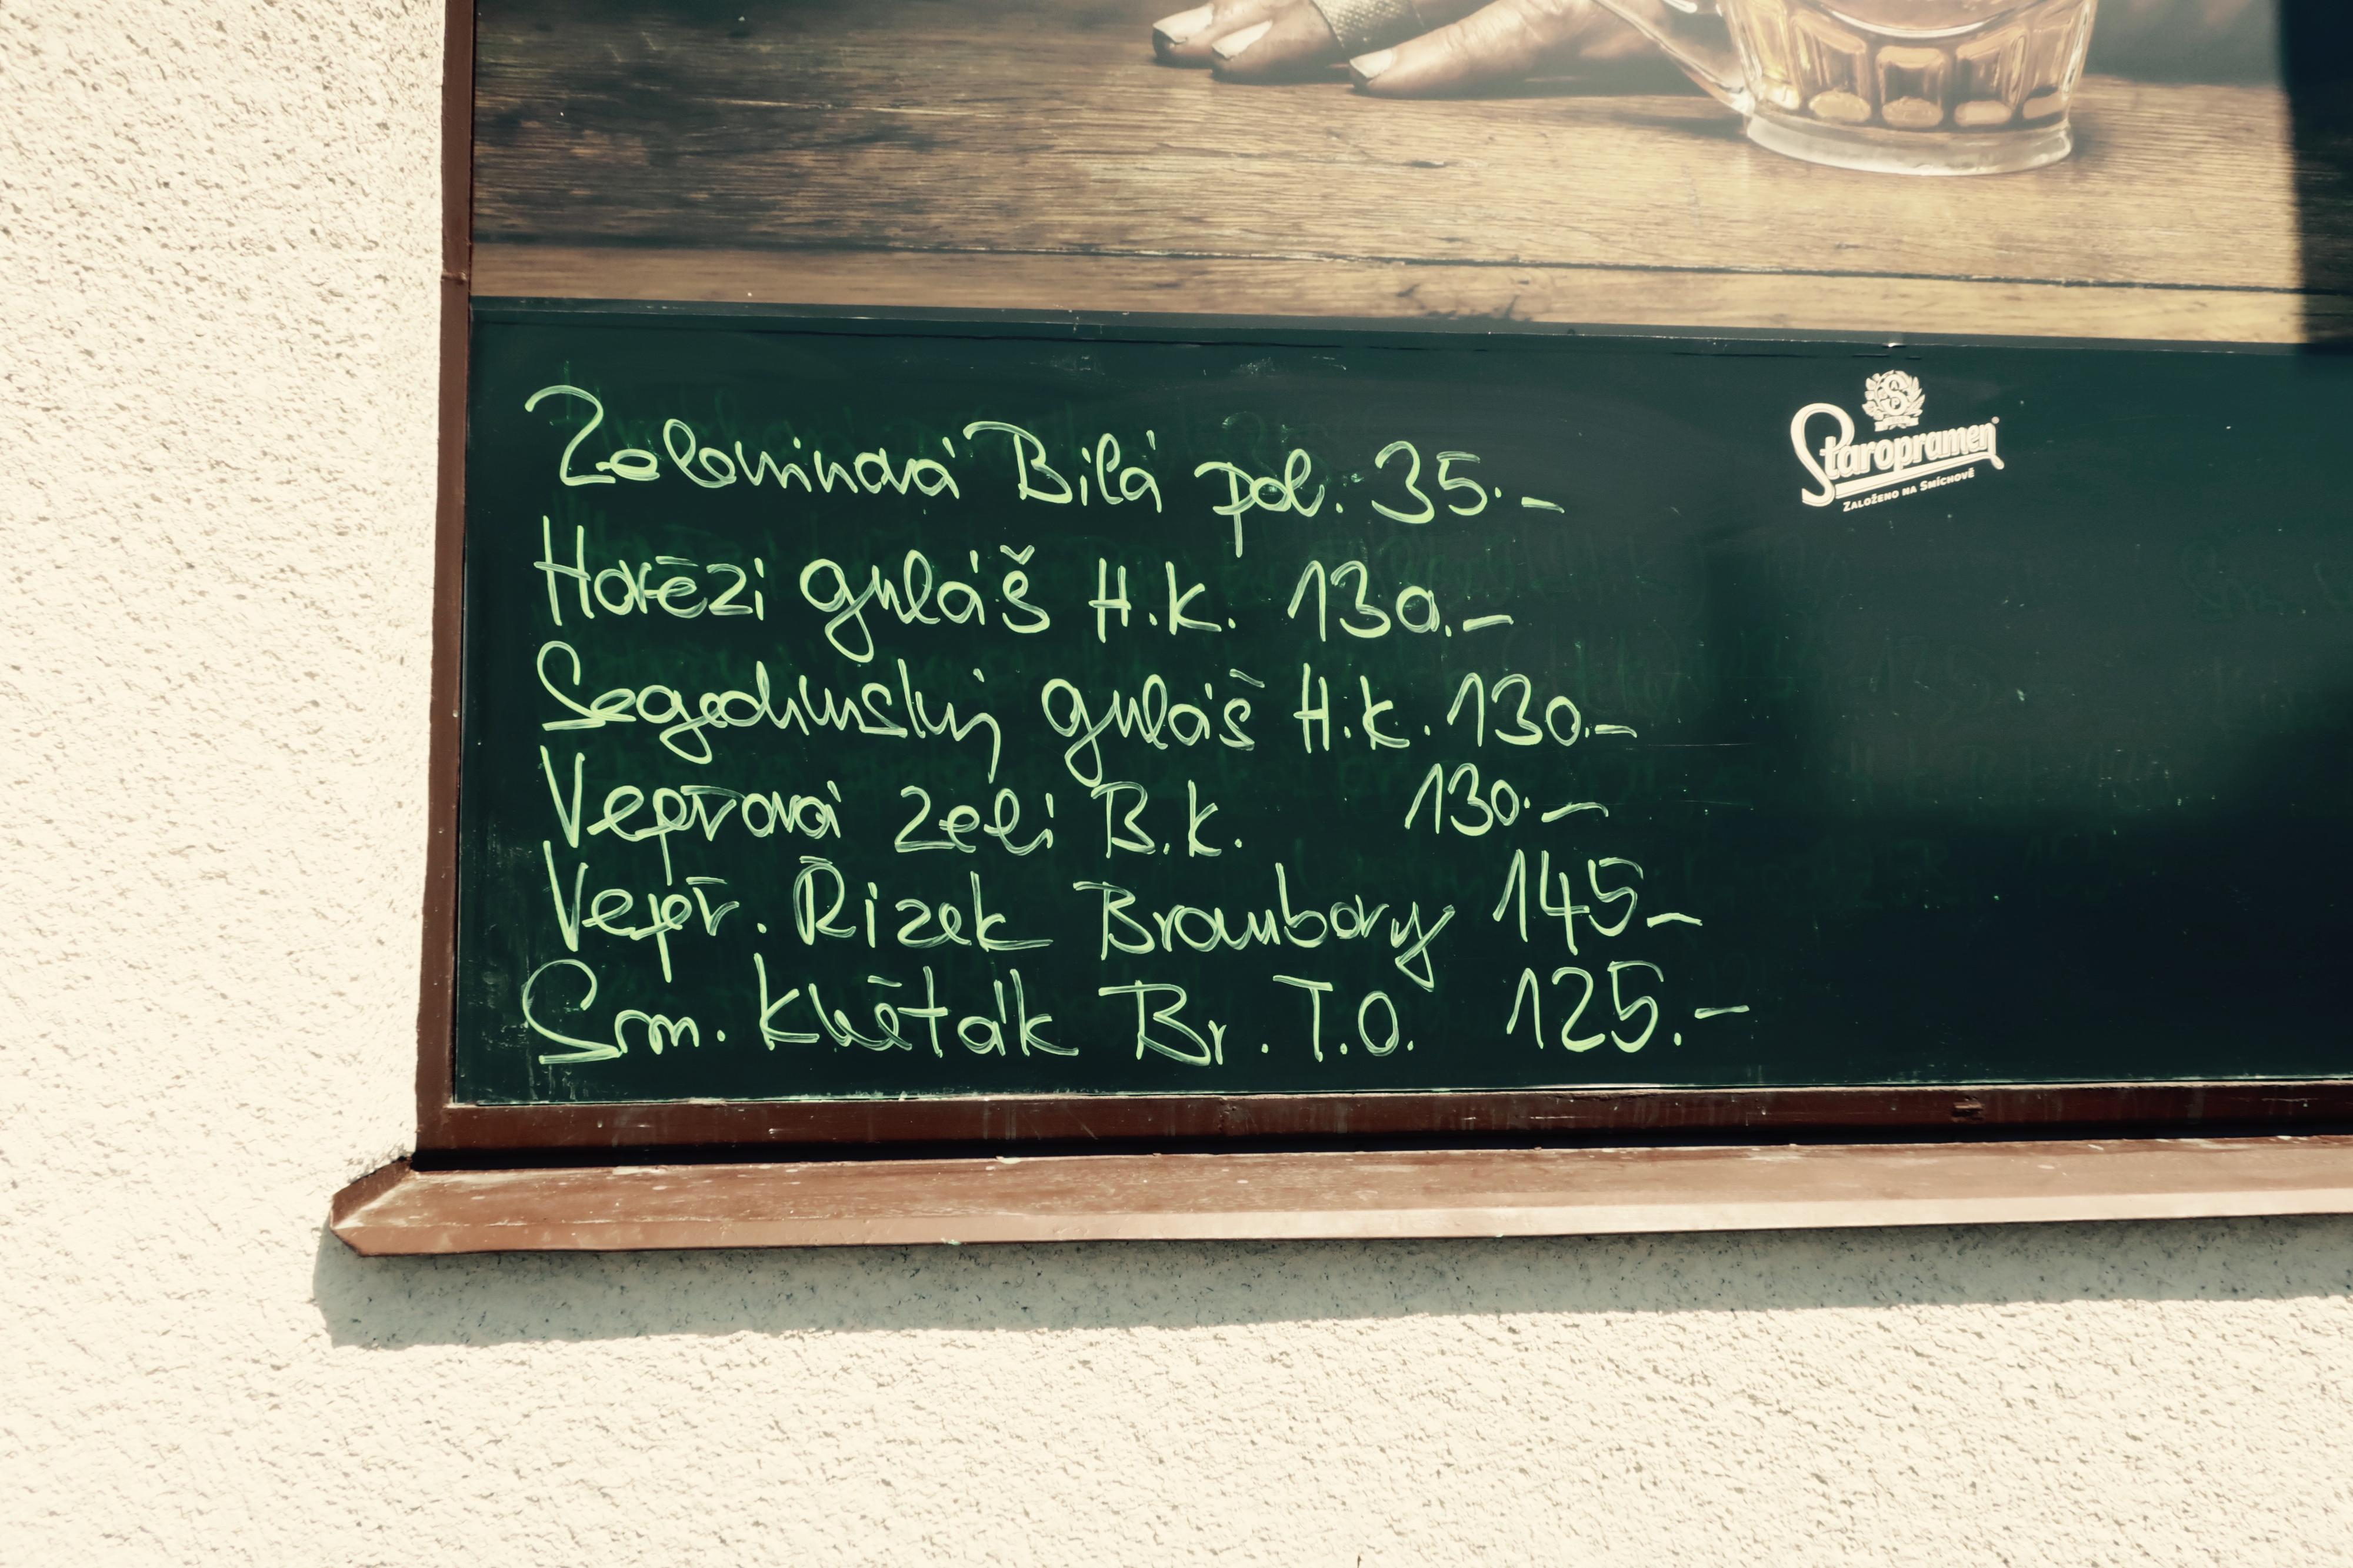 Zeleninová Bílá pol. 35.-
Hovězí guláš H.k. 130.-
Segedinský guláš H.k. 130.-
Vepřová zelí B.k. 130.-
Vepř. Řízek Brambory 145-
Sm. Květák Br. T.O. 125.-
Staropramen
ZALOŽENO NA SMÍCHOVĚ